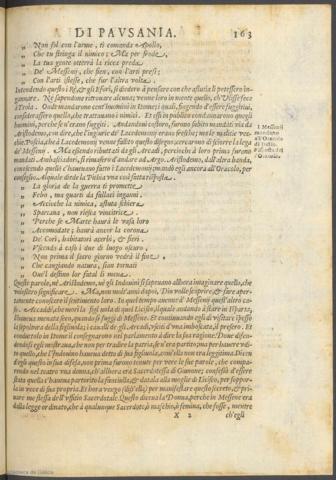 DI PAVSANIA. 163
„ Non sol con l'arme, ti comanda Apollo,
„ Che tu stringa il nimico; Ma per frode,
„ La tua gente otterrà la ricca preda
„ De' Messenij, che sien, con l'arti presi;
„ Con l'arti istesse, che fur l'altra volta.
Intendendo questo i Rè, & gli Efori, si diedero à pensare con che astutia li potessero in-
gannare. Ne sapendone ritrovare alcuna; venne loro in mente quello, ch'Vlisse fece
à Troia. Onde mandarono cent'huomini in Itome; i quali, fingendo d'essere fuggitivi,
considerassero quello, che trattavano i nimici. Et essi in publico condannarono quegli
huomini, perche se n'erano fuggiti. Andandovi costoro, furono subito mandati via da
Aristodemo, con dire, che l'ingiurie de' Lacedemonij erano fresche; ma le malitie vec-
chie. Poscia, che à Lacedemonij venne fallito questo disegno; cercarono di sciorre la lega
de' Messenij. Ma essendo ributtati da gli Arcadi, percioche à loro prima furono
mandati Ambasciadori, si rimasero d'andare ad Argo. Aristodemo, dall'altra banda,
conoscendo quello c'havevano fatto i Lacedemonij; mandò egli ancora all'Oracolo, per
consiglio. Al quale diede la Pithia una così fatta risposta.
I Messenij
mandano
all'Oraco-
lo
Oracolo.
„ La gloria de la guerra ti promette
„ Febo, ma guarti da fallaci inganni
„ la nimica, astuta schiera
„ Spartana, non riesca vincitrice.
„ Perche se Marte haurà le vasa loro
„ haurà ancor la corona
„ De' Cori, habitatori acerbi, & fieri.
„ à caso i due di luogo oscuro
„ Non prima il sacro giorno vedrà il fin,
„ Che cangiando natura, sian tornati
„ Quel dessimo lor fatal di mena.
Queste parole, nè Aristodemo, nè gli Indovini si sapevano allhora imaginare quello, che
volessero significare. Ma, non molt'anni dopoi, Dio volle scoprire, & fare aper-
tamente conoscere il sentimento loro. In quel tempo avenne à Messenij quest'altro ca-
so. Accadè, che morì la figliuola di quel Licisco, il quale andando à stare in Isparta,
l'haveva menata seco, quando si fuggì di Messene. Et continovando egli di visitare spesso
la sepoltura della figliuola; i cavalli de gli Arcadi, usciti d'una imboscata, il presero. Et
condotto in Itome il consegnarono nel parlamento à dire la sua ragione. Dove di-
fendendosi egli mostrava, che non per tradire la patria, se n'era partito; ma per havere udi-
to quello, che l'Indovino haveva detto di sua figliuola, cioè ella non era leggitima. Dicen-
do egli questo in sua difesa, non prima furono tenute per vere le sue parole, che comparen-
do nel teatro una donna, ch'allhora era Sacerdotessa di Giunone; confessò d'essere
stata quella c'haveva partorito la fanciulla, & datala alla moglie di Licisco, per suppor-
la in vece di sua propria. Et hora vengo (diss'ella) per manifestare questo secreto, & pri-
vare me stessa dell'ufficio Sacerdotale. Questo diceva la Donna, perche in Messene era
dalla legge ordinato, che à qualunque Sacerdote, ò maschio, ò femina, che fosse, mentre
X 2 ch'egli